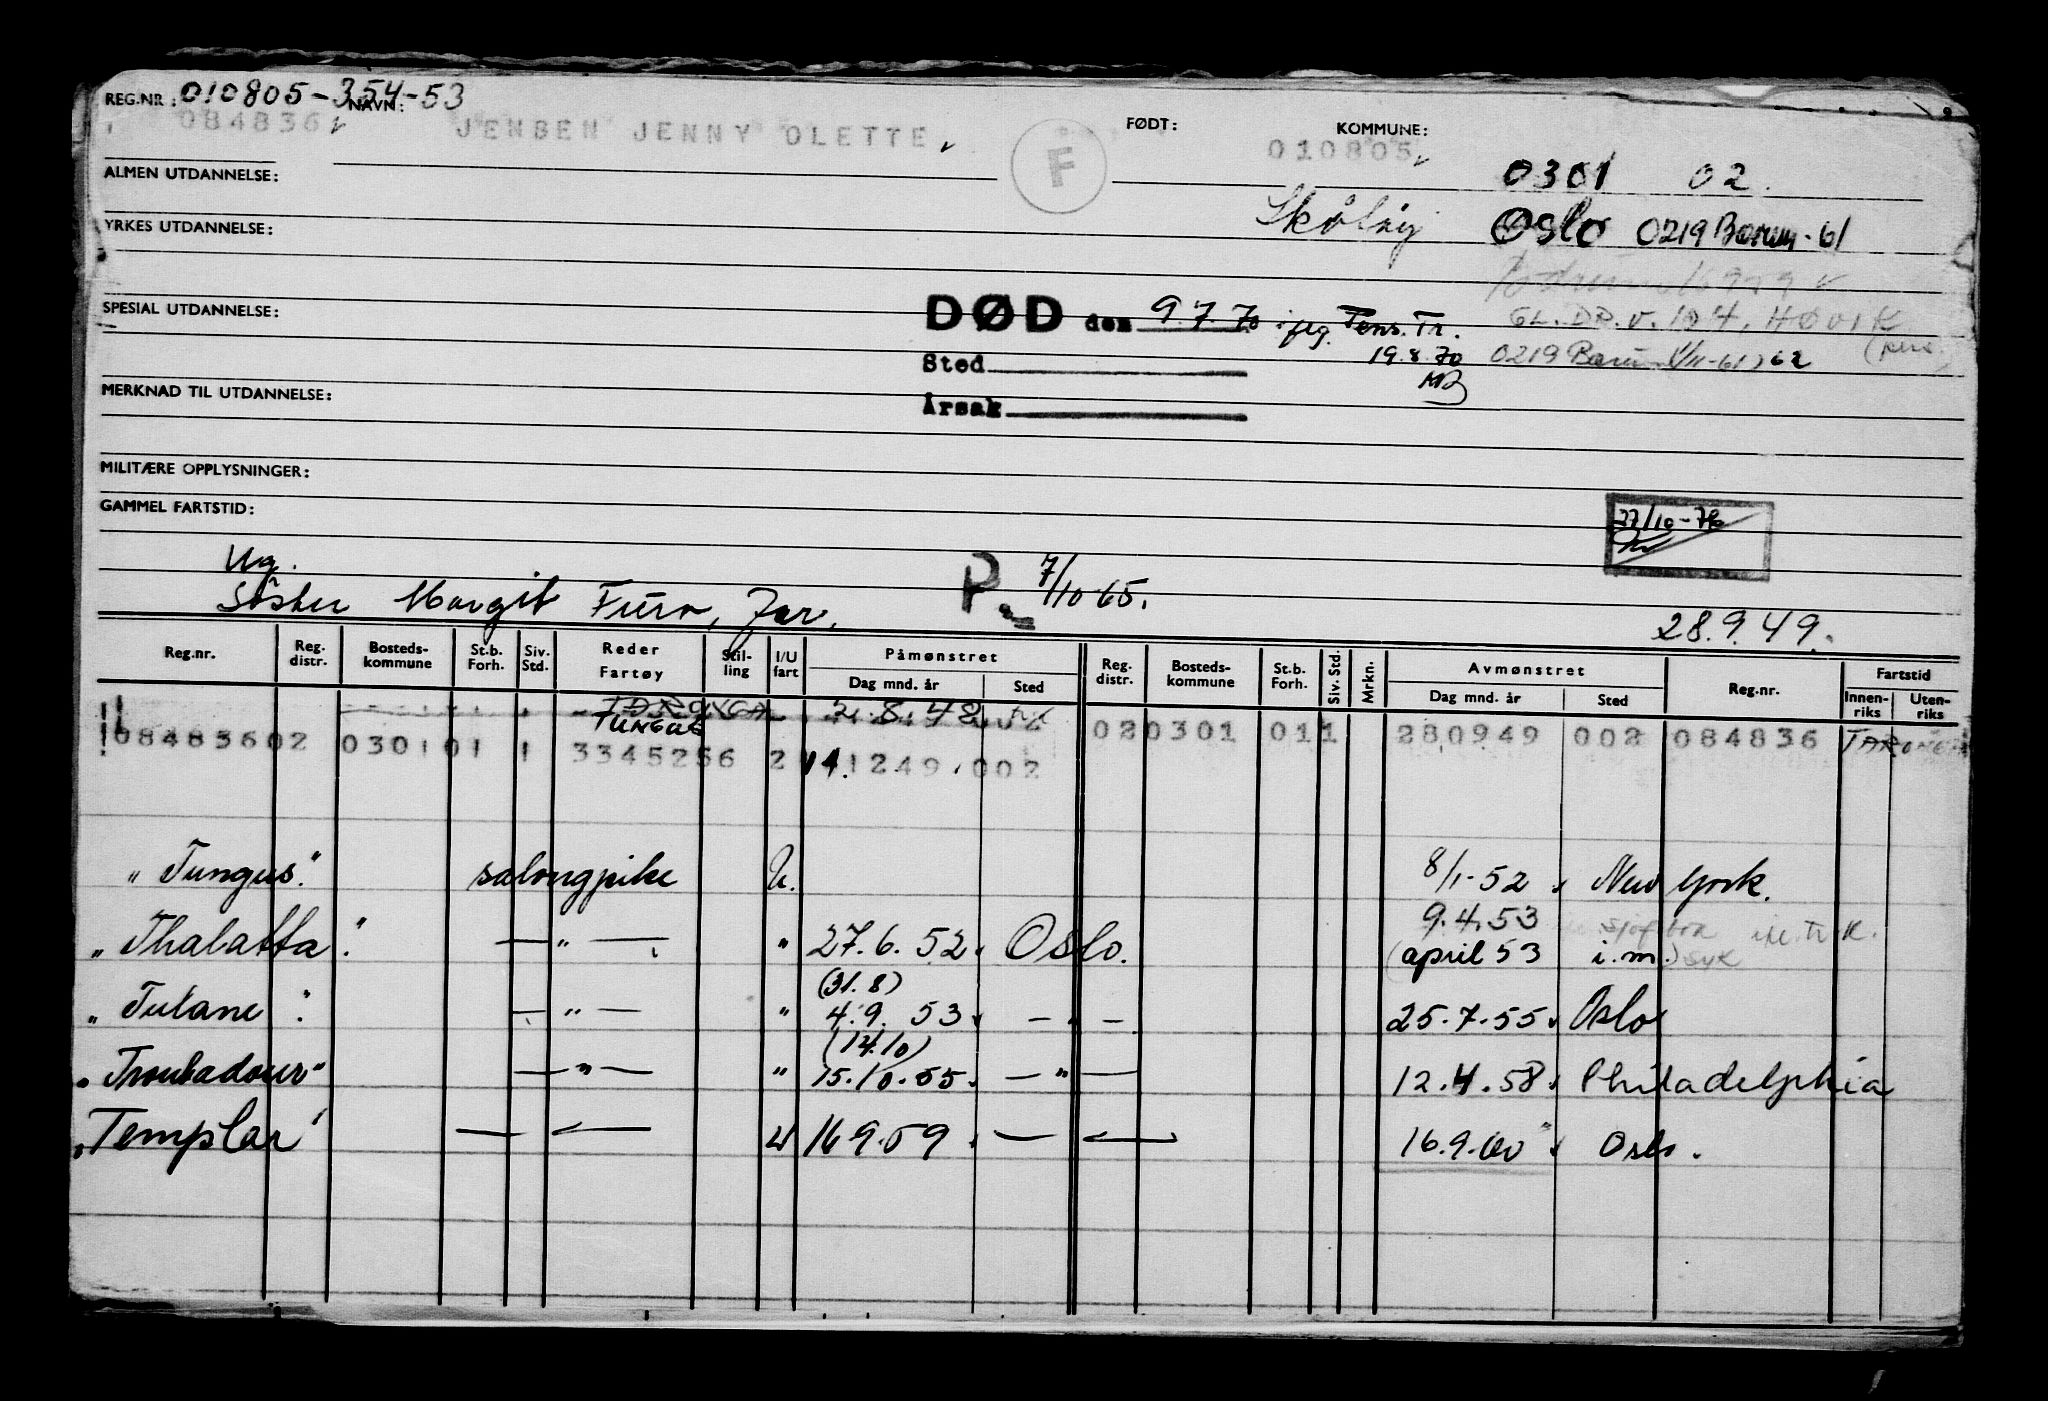 REG.NR: 010805-354-53 NAVN: FØDT: KOMMUNE:
084836 JENSEN JENNY OLETTE F 010805
0301 02.
ALMEN UTDANNELSE:
Oslo 0219 Bærum-61
YRKES UTDANNELSE:
SPESIAL UTDANNELSE:
DØD den 9.7.70 Tr. GL. DR.v. 104, HØVIK
Sted 19.8.70 0219 62
MERKNAD TIL UTDANNELSE:
Årsak
MILITÆRE OPPLYSNINGER:
GAMMEL FARTSTID:
27/10-76
Ug. P. 7/10 65.
Søster Margit Furo, Jar. 28.9.49.
Reg.nr. Reg. distr. Bosteds-kommune St.b. Forh. Siv. Std. Reder Fartøy Stil-ling I/U fart Påmønstret Dag mnd. år Sted Reg. distr. Bosteds-kommune St.b. Forh. Siv. Std. Mrkn. Avmønstret Dag mnd. år Sted Reg.nr. Fartstid Innen-riks Uten-riks
TARONGA 2.8.48
TUNGUS
084836 02 0301 01 1 3345256 2 141249 002 02 0301 01 1 280949 002 084836 TARONGA
"Tungus" salongpike U. 8/1-52 New York.
9.4.53
"Thalatta" —"— " 27.6.52. Oslo. (april 53 i.m.) syk
(31.8)
"Tulane" —"— " 4.9.53. —"— 25.7.55. Oslo
(14.10)
"Troubadour" —"— " 15.10.55. —"— 12.4.58. Philadelphia
"Templar" — — U 16.9.59. — — 16.9.60. Oslo.